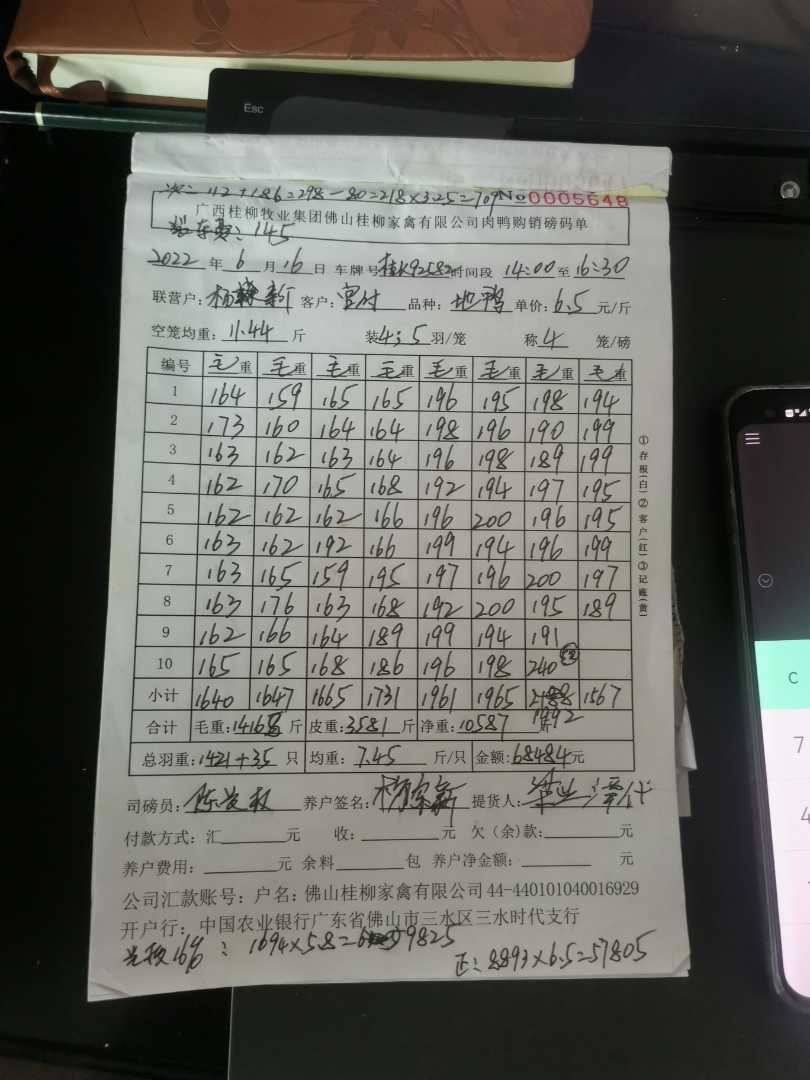 Esc
次: 112+186=298-80=218×3.25=709 No 0005648
广西桂柳牧业集团佛山桂柳家禽有限公司肉鸭购销磅码单
145
2022 年 6 月 16 日 车牌号 桂K92582 时间段 14:00 至 16:30
联营户: 杨 新 客户: 品种: 地鸭 单价: 6.5 元/斤
空笼均重: 11.44 斤 装 4;5 羽/笼 称 4 笼/磅
编号 毛重 毛重 毛重 毛重 毛重 毛重 毛重 毛重
1 164 159 165 165 196 195 198 194
2 173 160 164 164 198 196 190 199
3 163 162 163 164 196 198 189 199
4 162 170 165 168 192 194 197 195
5 162 162 162 166 196 200 196 195
6 163 162 192 166 199 194 196 199
7 163 165 159 195 197 196 200 197
8 163 176 163 168 192 200 195 189
9 162 166 164 189 199 194 191
10 165 165 168 186 196 198 240
小计 1640 1647 1665 1731 1961 1965 1567
1992
合计 毛重: 14168 斤 皮重: 3581 斤 净重: 10587 斤
总羽重: 1421+35 只 均重: 7.45 斤/只 金额: 68484 元
司磅员: 养户签名: 提货人:
付款方式: 汇 元 收: 元 欠(余)款: 元
养户费用: 元 余料 包 养户净金额: 元
公司汇款账号: 户名: 佛山桂柳家禽有限公司 44-440101040016929
开户行: 中国农业银行广东省佛山市三水区三水时代支行
: 1694×5.8= 9825
正: 8893×6.5=57805
①存根(白)②客户(红)③记账(黄)
C
7
4